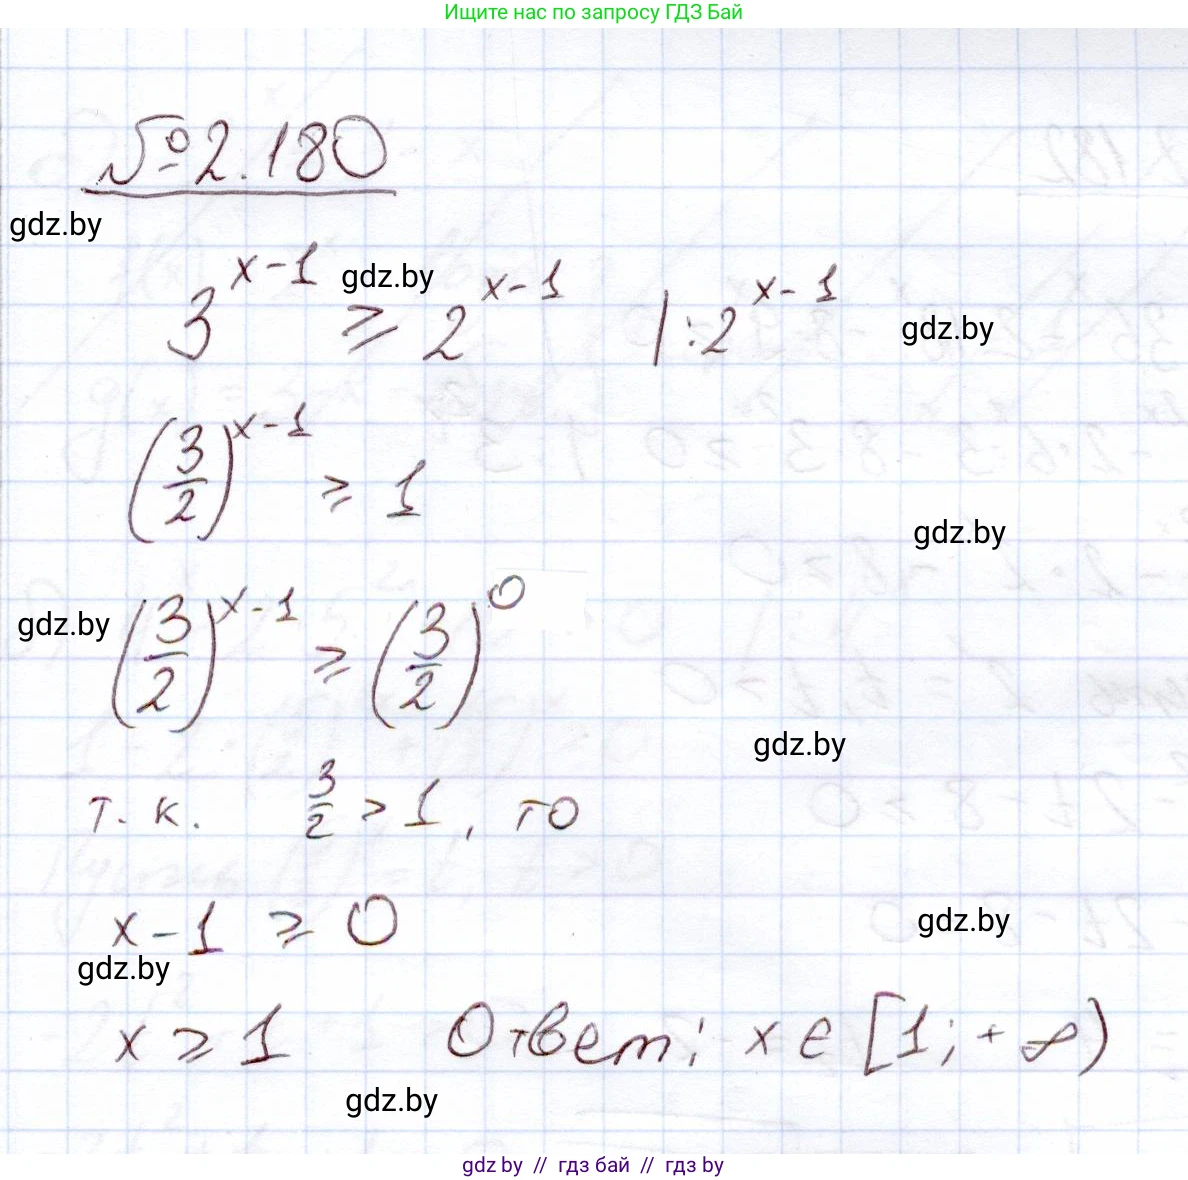 Ищите нас по запросу ГДЗ Бай
№2.180
gdz.by
3^{x-1} ≥ 2^{x-1} |:2^{x-1}
gdz.by
gdz.by
(3/2)^{x-1} ≥ 1
gdz.by
(3/2)^{x-1} ≥ (3/2)^0
gdz.by
gdz.by
т. к. 3/2 > 1, то
x-1 ≥ 0
gdz.by
gdz.by
x ≥ 1 Ответ: x ∈ [1; +∞)
gdz.by
gdz by // гдз бай // гдз by